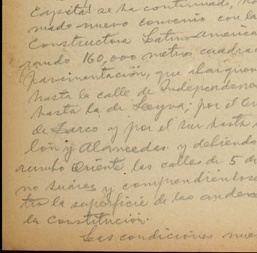 Capital se ha confirmado,
mado nuevo convenio con la
Constructora Latino Americana
rando 160,000 metros cuadra
Pavimentación, que
hasta la calle de Independen
hasta la de Leyva; por el
de Larco y por el sur hasta
lón y Alamedas y debiendo
rumbo Oriente las calles de 5 de
no Suárez y comprendiéndose
tro la superficie de las
la Constitución.
Las condiciones